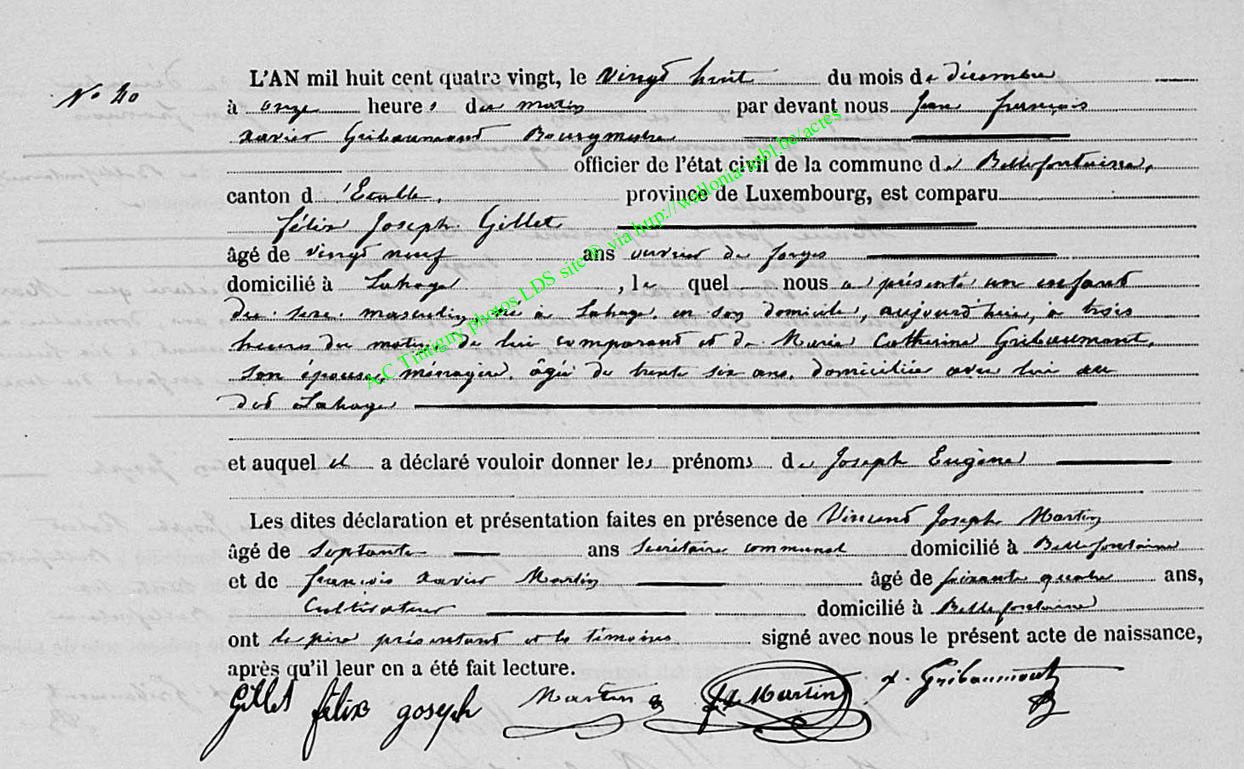 No 40
L'AN mil huit cent quatre vingt, le vingt huit du mois de décembre
à onze heures du matin par devant nous Jean françois
Xavier Gribaumont Bourgmestre
officier de l'état civil de la commune de Bellefontaine,
canton d'Etalle, province de Luxembourg, est comparu
félix Joseph Gillet
âgé de vingt neuf ans ouvrier de forges
domicilié à Lahage, lequel nous a présenté un enfant
du sexe masculin, né à Lahage, en son domicile, aujourd'hui, à trois
heures du matin, de lui comparant et de Marie Catherine Gribaumont,
son épouse, ménagère, âgée de trente six ans, domiciliée avec lui au
dit Lahage
et auquel il a déclaré vouloir donner les prénoms de Joseph Eugène
Les dites déclaration et présentation faites en présence de Vincent Joseph Martin
âgé de septante ans secrétaire communal domicilié à Bellefontaine
et de françois Xavier Martin âgé de soixante quatre ans,
Cultivateur domicilié à Bellefontaine
ont le père présentant et les témoins signé avec nous le présent acte de naissance,
après qu'il leur en a été fait lecture.
Gillet félix Joseph Martin Martin x. Gribaumont
A.C Tintigny photos LDS site © via http://wallonia.mbl.be/actes